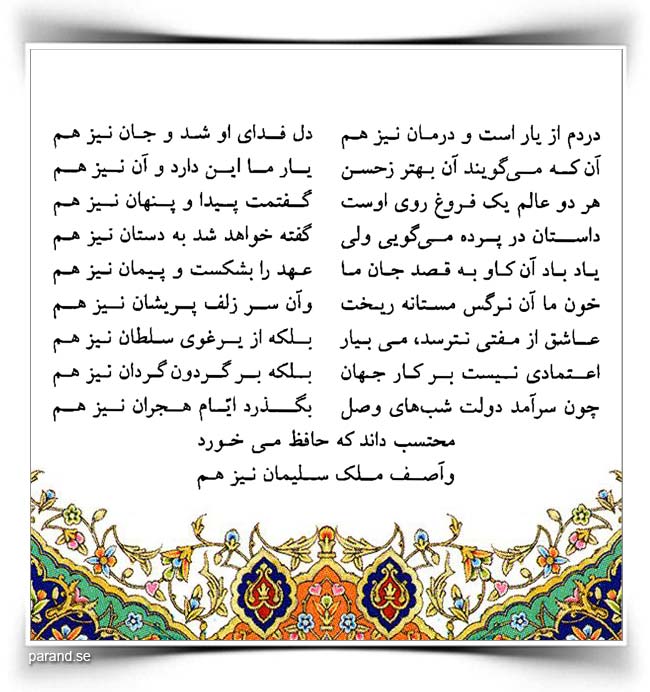 دردم از یار است و درمان نیز هم دل فدای او شد و جان نیز هم
آن که می‌گویند آن بهتر زحسن یار ما این دارد و آن نیز هم
هر دو عالم یک فروغ روی اوست گفتمت پیدا و پنهان نیز هم
داستان در پرده می‌گویی ولی گفته خواهد شد به دستان نیز هم
یاد باد آن کاو به قصد جان ما عهد را بشکست و پیمان نیز هم
خون ما آن نرگس مستانه ریخت وآن سر زلف پریشان نیز هم
عاشق از مفتی نترسد، می بیار بلکه از یرغوی سلطان نیز هم
اعتمادی نیست بر کار جهان بلکه بر گردون گردان نیز هم
چون سرآمد دولت شب‌های وصل بگذرد ایّام هجران نیز هم
محتسب داند که حافظ می خورد
وآصف ملک سلیمان نیز هم
parand.se